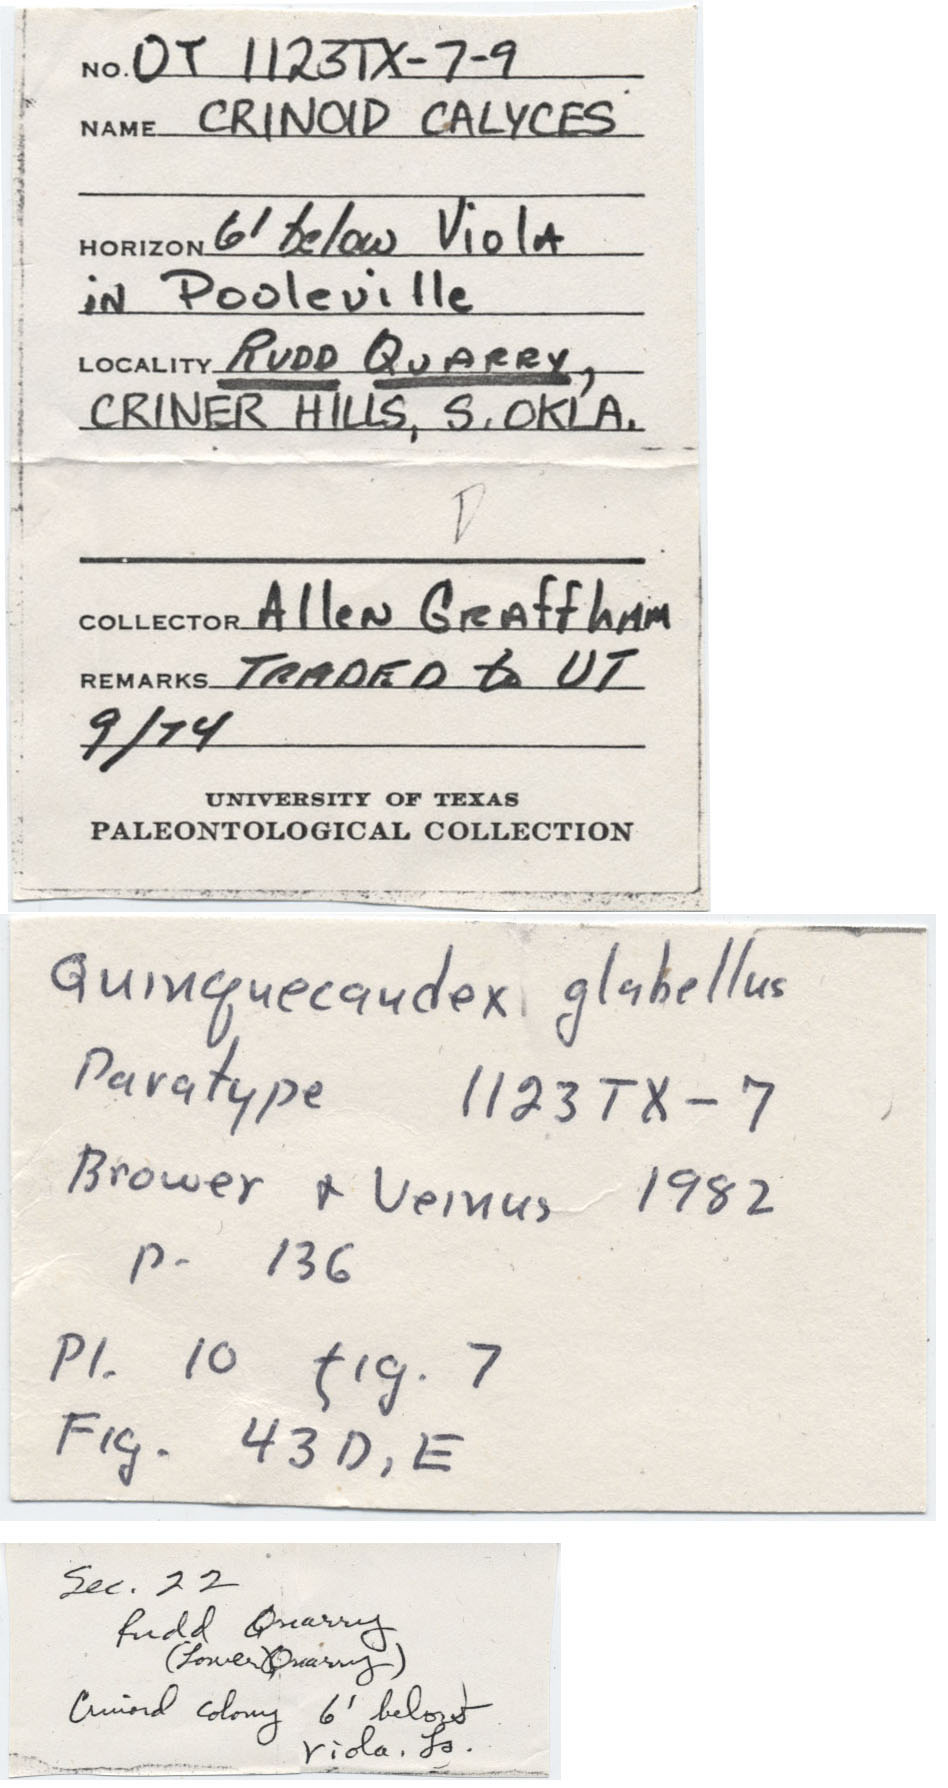 NO. OT 1123TX-7-9
NAME CRINOID CALYCES
HORIZON 6' below Viola
in Pooleville
LOCALITY RUDD QUARRY,
CRINER HILLS, S. OKLA.
D
COLLECTOR Allen Graffham
REMARKS TRADED to UT
9/74
UNIVERSITY OF TEXAS
PALEONTOLOGICAL COLLECTION
Quinquecaudex glabellus
Paratype 1123TX-7
Brower & Veinus 1982
p. 136
Pl. 10 fig. 7
Fig. 43D,E
Sec. 22
Rudd Quarry
(Lower Quarry)
Crinoid colony 6' below
Viola. Ls.